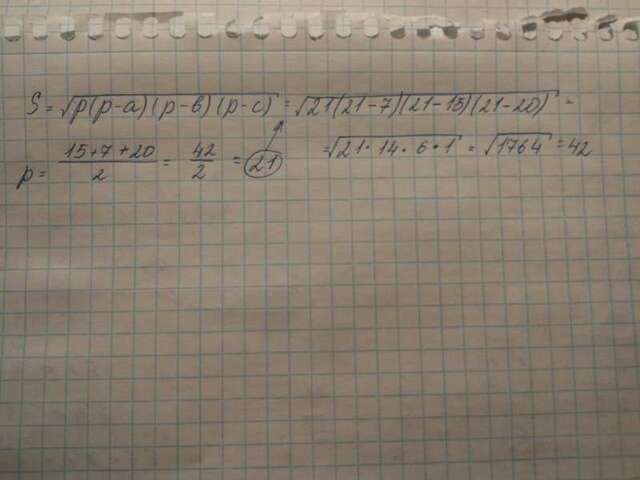 S = √p(p-a)(p-в)(p-c) = √21(21-7)(21-15)(21-20) =
p = 15+7+20/2 = 42/2 = 21 = √21·14·6·1 = √1764 = 42